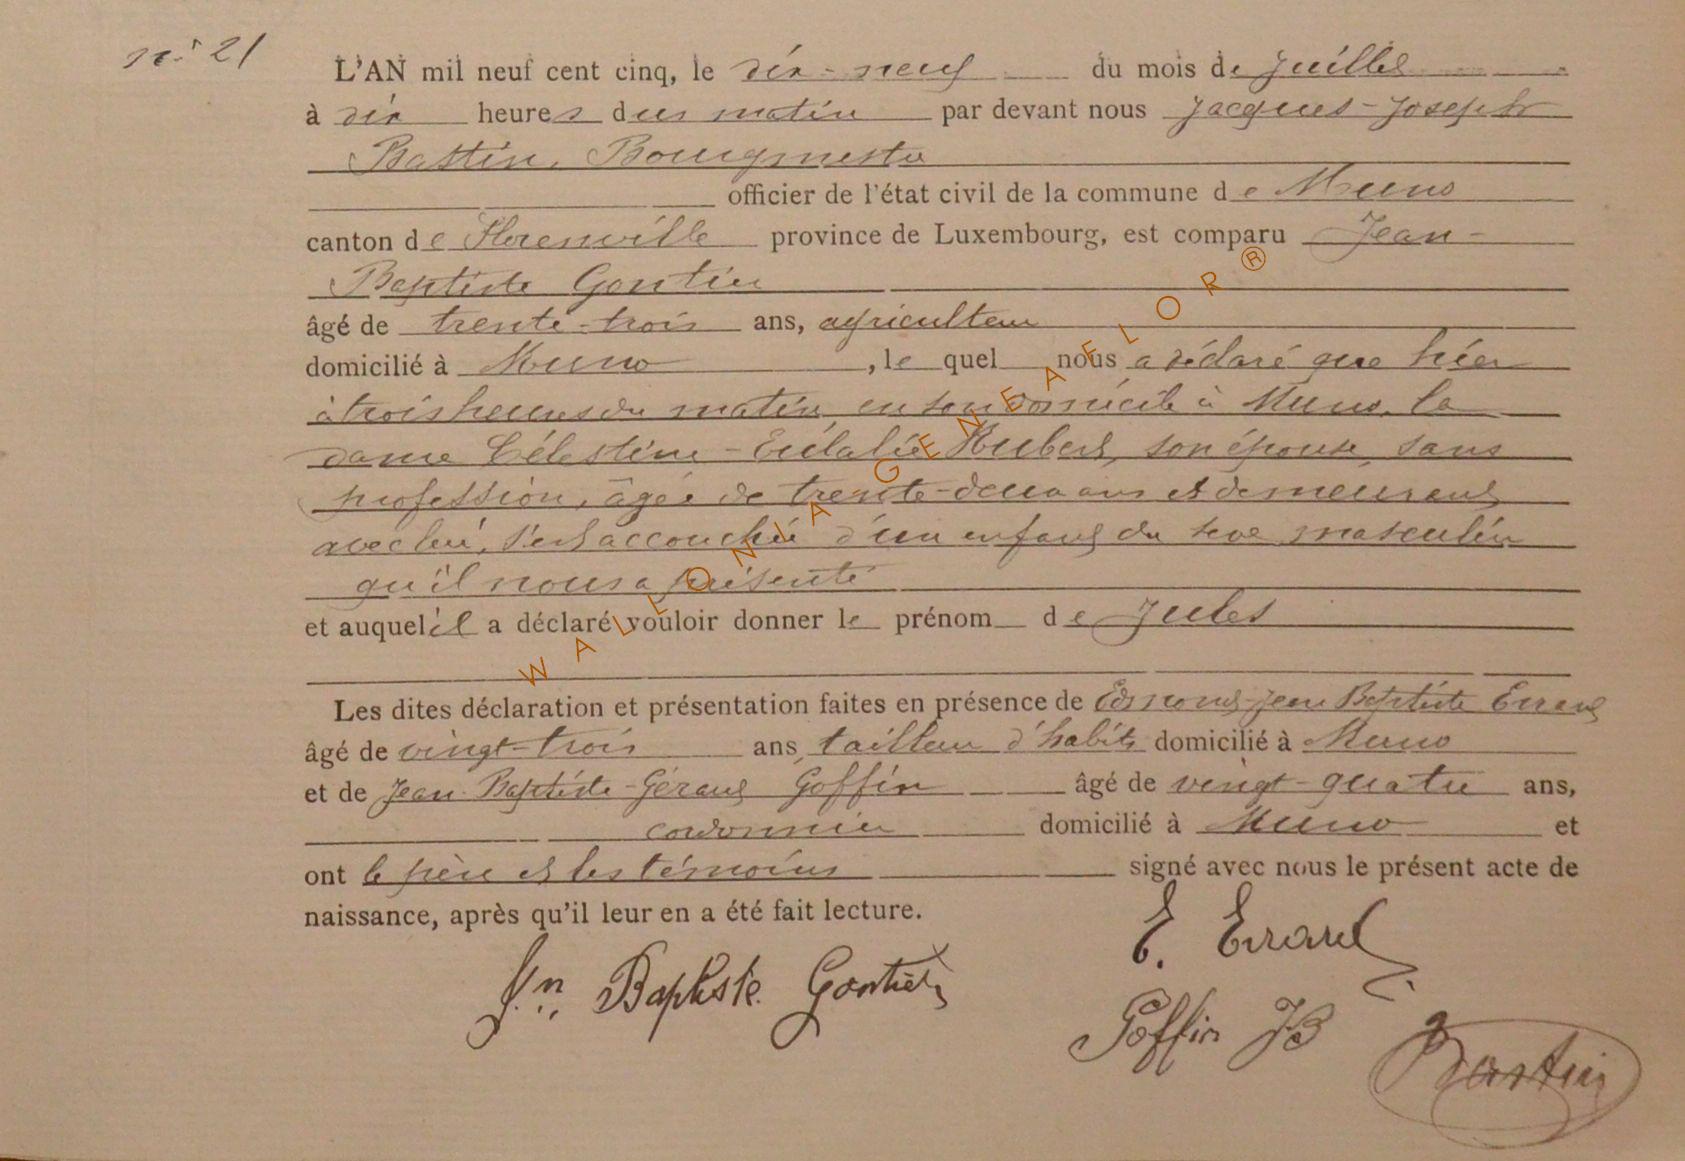 n° 21
L'AN mil neuf cent cinq, le dix-neuf du mois de Juillet
à dix heures du matin par devant nous Jacques-Joseph
Bastin, Bourgmestre
officier de l'état civil de la commune de Muno
canton de Florenville province de Luxembourg, est comparu Jean-
Baptiste Gontier
âgé de trente-trois ans, agriculteur
domicilié à Muno, le quel nous a déclaré que hier
à trois heures du matin, en son domicile à Muno, la
dame Célestine-Eulalie Hubert, son épouse, sans
profession, âgée de trente-deux ans et demeurant
avec lui, s'est accouchée d'un enfant du sexe masculin
qu'il nous a présenté
et auquel il a déclaré vouloir donner le prénom de Jules
Les dites déclaration et présentation faites en présence de Edmond-Jean Baptiste Errard
âgé de vingt-trois ans, tailleur d'habits domicilié à Muno
et de Jean-Baptiste-Gérard Goffin âgé de vingt-quatre ans,
cordonnier domicilié à Muno et
ont le père et les témoins signé avec nous le présent acte de
naissance, après qu'il leur en a été fait lecture.
E. Errard
Jn Baptiste Gontier
Goffin JB
Bastin
WALLONIA GENEAFLOR ®